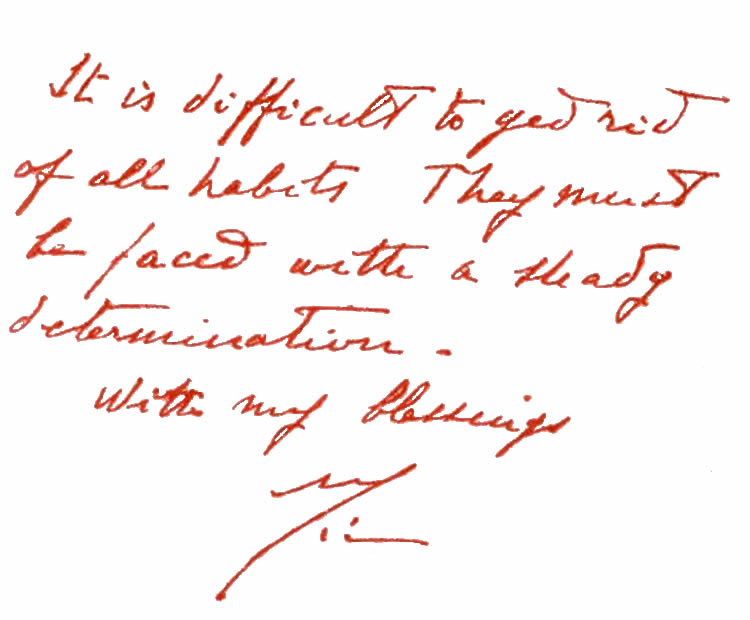 It is difficult to get rid
of all habits They must
be faced with a steady
determination.
With my blessings